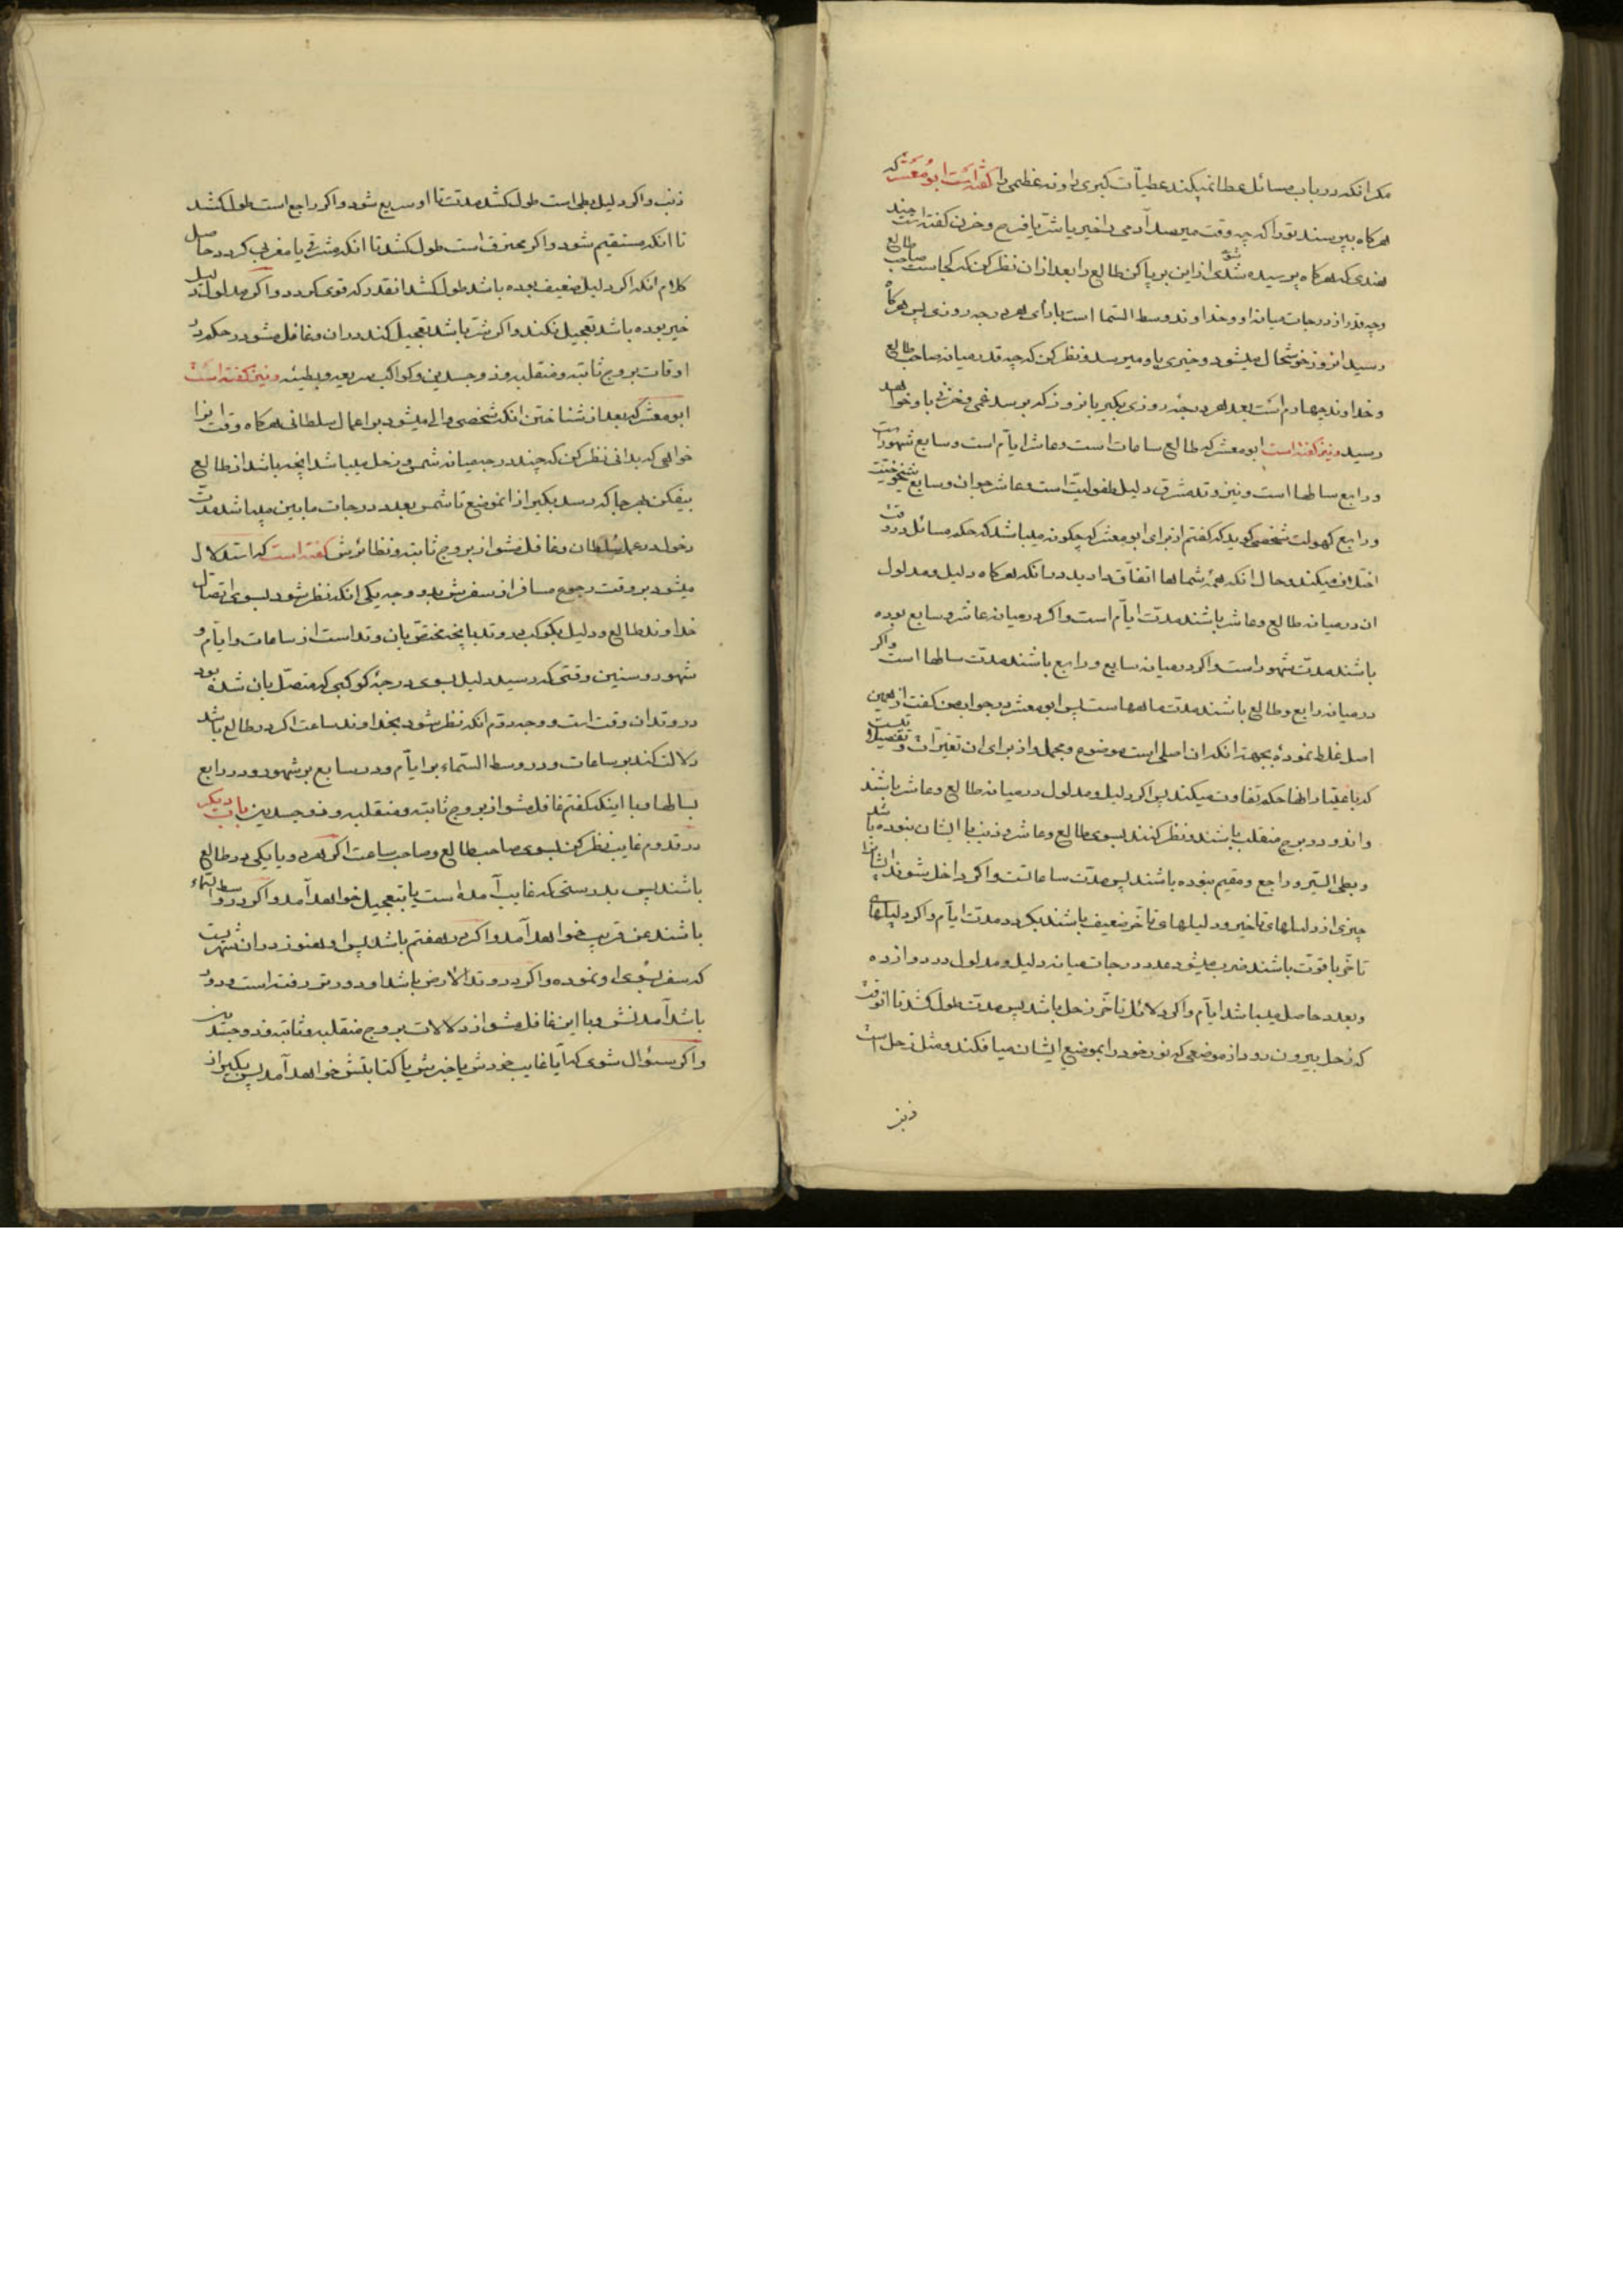 مکر انکه در باب مسائل عطا نمیکند عطیّات کبری را و نه عظمی را کفته است ابو معشر که
هرکاه بپرسند تو را که چه وقت میرسد آدمی را خیر یا شرّ یا فرح و حزن کفته است چند
هندی که هرکاه پرسیده شدی از این برپا کن طالع را بعد از ان نظر کن که کجاست صاحب طالع
وچه قدر از درجات میانه او و خداوند وسط السّما است بازای هر درجه روزی پس هرکاه
رسید انروز خوشحال میشود و خیری باو میرسد و نظر کن که چه قدر میانه صاحب طالع
و خداوند چهارم است بعد هر درجه روزی بکیر پانروز که برسد غمی و حزنی باو خواهد
رسید و نیز کفته است ابو معشر که طالع ساعات است و عاشر ایاّم است و سابع شهور است
و رابع سالها است و نیز وتد مشرق دلیل طفولیّت است و عاشر جوانی و سابع شیخوخیّت
و رابع کهولت شخصی کوید که کفتم از برای ابو معشر که چکونه میباشد که حکم مسائل در وقت
اختلاف میکند و حال انکه همه شماها اتفّاق دارید در انکه هرکاه دلیل و مدلول
ان در میانه طالع و عاشر باشند مدّت ایاّم است و اکر در میانه عاشر و سابع بوده
باشند مدّت شهور است و اکر در میانه سابع و رابع باشند مدّت سالها است و اکر
در میانه رابع و طالع باشند مدّت ماهها است پس ابو معشر در جواب من کفت از همین
اصل غلط نموده بجهة انکه ان اصلی است موضوع و مجمل و از برای ان تغیّرات و تفصیلات
که باعتبار انها حکم تفاوت میکند پس اکر دلیل و مدلول در میانه طالع و عاشر باشند
و اندو در برج منقلب باشند و نظر کنند بسوی طالع و عاشر و ذنب با ایشان نبوده باشد
و بطی السّیر و راجع و مقیم نبوده باشند پس مدّت ساعاتست و اکر داخل شوند ایشانرا
چیزی از دلیلهای تاخیر و دلیلهای تاخّر ضعیف باشند بکردد مدّت ایاّم و اکر دلیلهای
تاخّر باقوّت باشند ضرب میشود عدد درجات میانه دلیل و مدلول در دوازده
و بعدد حاصل میباشد ایاّم و اکر دلائل تاخّر زحل باشد پس مدّت طول کشد تا انوقت
که زحل بیرون رود از موضعی که نور خود را بموضع ایشان میافکند و مثل زحل است
ذنب
ذنب و اکر دلیل بطی است طول کشد مدّت تا او سریع شود و اکر راجع است طول کشد
تا انکه مستقیم شود و اکر محترق است طول کشد تا انکه مشرقی یا مغربی کردد حاصل
کلام انکه اکر دلیل ضعیف بوده باشد طول کشد انقدر که قوی کردد و اکر مدلول دلیل
خیر بوده باشد تعجیل نکند و اکر شرّ باشد تعجیل کند در ان و غافل مشو در حکم در
اوقات بروج ثابته و منقلبه و ذو جسدین و کواکب سریعه و بطیئه و نیز کفته است
ابو معشر که بعد از شناختن انکه شخصی والی میشود بر اعمال سلطانی هرکاه وقت انرا
خواهی که بدانی نظر کن که چند درجه میانه شمس و زحل میباشد انچه باشد از طالع
بیفکن هر جا که رسد بکیر از انموضع تا شمس بعدد درجات مابین میباشد مدّت
دخول در عمل سلطان و غافل مشو از بروج ثابته و نظائرش کفته است که استدلال
میشود بر وقت رجوع مسافر از سفرش بدو وجه یکی انکه نظر شود بسوی اتصّال
خداوند طالع و دلیل بکوکب در وتد بانچه مختصّ بان وتد است از ساعات و ایاّم و
شهور و سنین وقتی که رسید دلیل بسوی درجه کوکبی که متصّل بان شده بود
در وتد ان وقت است و وجه دوّم انکه نظر شود بخداوند ساعت اکر در طالع باشد
دلالت کند بر ساعات و در وسط السّماء بر ایاّم و در سابع بر شهور و در رابع
بسالها و با اینکه کفتم غافل مشو از بروج ثابته و منقلبه و ذو جسدین باب دیکر
در قدوم غایب نظر کن بسوی صاحب طالع و صاحب ساعت اکر هر دو یا یکی در طالع
باشند پس بدرستی که غایب آمده است یا بتعجیل خواهد آمد و اکر در وسط السّماء
باشند عن قریب خواهد آمد و اکر در هفتم باشد پس او هنوز در ان شهریست
که سفر بسوی او نموده و اکر در وتد الارض باشد او دورتر رفته است و دور
باشد آمدنش و با این غافل مشو از دلالات بروج منقلبه و ثابته و ذو جسدین
و اکر سئوال شوی که آیا غایب خودش یا خبرش یا کتابتش خواهد آمد پس بکیر از